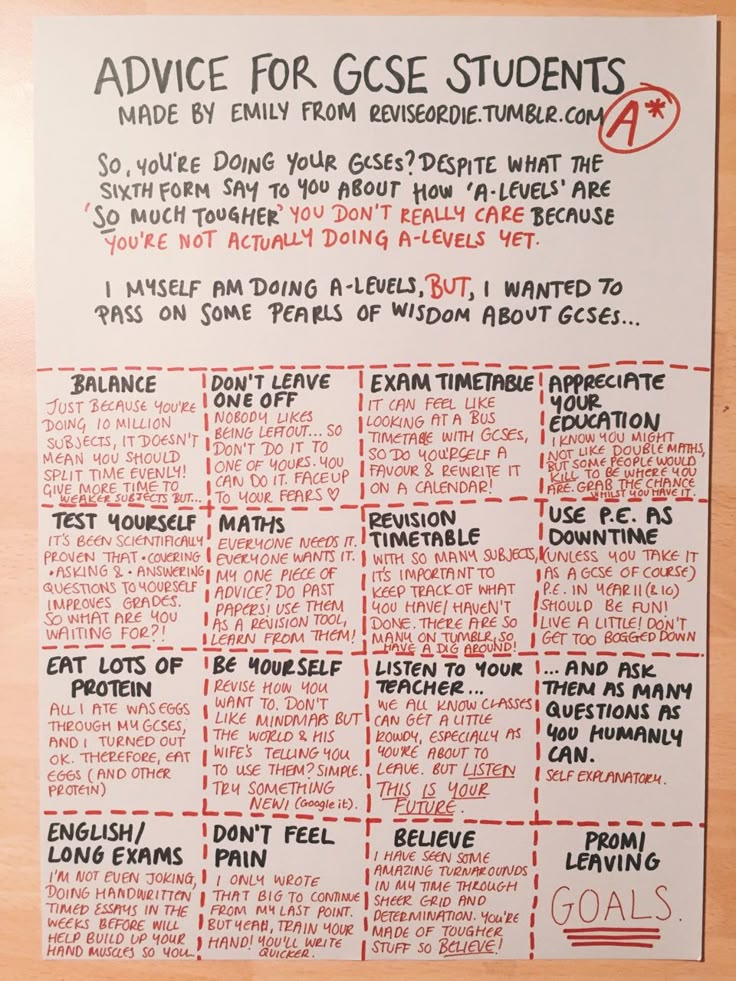 ADVICE FOR GCSE STUDENTS
MADE BY EMILY FROM REVISEORDIE.TUMBLR.COM
A*
SO, YOU'RE DOING YOUR GCSES? DESPITE WHAT THE
SIXTH FORM SAY TO YOU ABOUT HOW 'A-LEVELS' ARE
'SO MUCH TOUGHER' YOU DON'T REALLY CARE BECAUSE
YOU'RE NOT ACTUALLY DOING A-LEVELS YET.
I MYSELF AM DOING A-LEVELS, BUT, I WANTED TO
PASS ON SOME PEARLS OF WISDOM ABOUT GCSES...
BALANCE
JUST BECAUSE YOU'RE
DOING 10 MILLION
SUBJECTS, IT DOESN'T
MEAN YOU SHOULD
SPLIT TIME EVENLY!
GIVE MORE TIME TO
WEAKER SUBJECTS BUT...
DON'T LEAVE
ONE OFF
NOBODY LIKES
BEING LEFTOUT... SO
DON'T DO IT TO
ONE OF YOURS. YOU
CAN DO IT. FACE UP
TO YOUR FEARS ♡
EXAM TIMETABLE
IT CAN FEEL LIKE
LOOKING AT A BUS
TIMETABLE WITH GCSES,
SO DO YOURSELF A
FAVOUR & REWRITE IT
ON A CALENDAR!
APPRECIATE
YOUR
EDUCATION
I KNOW YOU MIGHT
NOT LIKE DOUBLE MATHS,
BUT SOME PEOPLE WOULD
KILL TO BE WHERE YOU
ARE. GRAB THE CHANCE
WHILST YOU HAVE IT.
TEST YOURSELF
IT'S BEEN SCIENTIFICALLY
PROVEN THAT • COVERING
• ASKING & • ANSWERING
QUESTIONS TO YOURSELF
IMPROVES GRADES.
SO WHAT ARE YOU
WAITING FOR?!
MATHS
EVERYONE NEEDS IT.
EVERYONE WANTS IT.
MY ONE PIECE OF
ADVICE? DO PAST
PAPERS! USE THEM
AS A REVISION TOOL,
LEARN FROM THEM!
REVISION
TIMETABLE
WITH SO MANY SUBJECTS,
IT'S IMPORTANT TO
KEEP TRACK OF WHAT
YOU HAVE/HAVEN'T
DONE. THERE ARE SO
MANY ON TUMBLR, SO
HAVE A DIG AROUND!
USE P.E. AS
DOWNTIME
(UNLESS YOU TAKE IT
AS A GCSE OF COURSE)
P.E. IN YEAR 11 (& 10)
SHOULD BE FUN!
LIVE A LITTLE! DON'T
GET TOO BOGGED DOWN
EAT LOTS OF
PROTEIN
ALL I ATE WAS EGGS
THROUGH MY GCSES,
AND I TURNED OUT
OK. THEREFORE, EAT
EGGS (AND OTHER
PROTEIN)
BE YOURSELF
REVISE HOW YOU
WANT TO. DON'T
LIKE MINDMAPS BUT
THE WORLD & HIS
WIFE'S TELLING YOU
TO USE THEM? SIMPLE.
TRY SOMETHING
NEW! (Google it).
LISTEN TO YOUR
TEACHER...
WE ALL KNOW CLASSES
CAN GET A LITTLE
ROWDY, ESPECIALLY AS
YOU'RE ABOUT TO
LEAVE. BUT LISTEN
THIS IS YOUR
FUTURE.
... AND ASK
THEM AS MANY
QUESTIONS AS
YOU HUMANLY
CAN.
SELF EXPLANATORY.
ENGLISH/
LONG EXAMS
I'M NOT EVEN JOKING,
DOING HANDWRITTEN
TIMED ESSAYS IN THE
WEEKS BEFORE WILL
HELP BUILD UP YOUR
HAND MUSCLES SO YOU
DON'T FEEL
PAIN
I ONLY WROTE
THAT BIG TO CONTINUE
FROM MY LAST POINT.
BUT YEAH, TRAIN YOUR
HAND! YOU'LL WRITE
QUICKER.
BELIEVE
I HAVE SEEN SOME
AMAZING TURNAROUNDS
IN MY TIME THROUGH
SHEER GRID AND
DETERMINATION. YOU'RE
MADE OF TOUGHER
STUFF SO BELIEVE!
PROM/
LEAVING
GOALS.